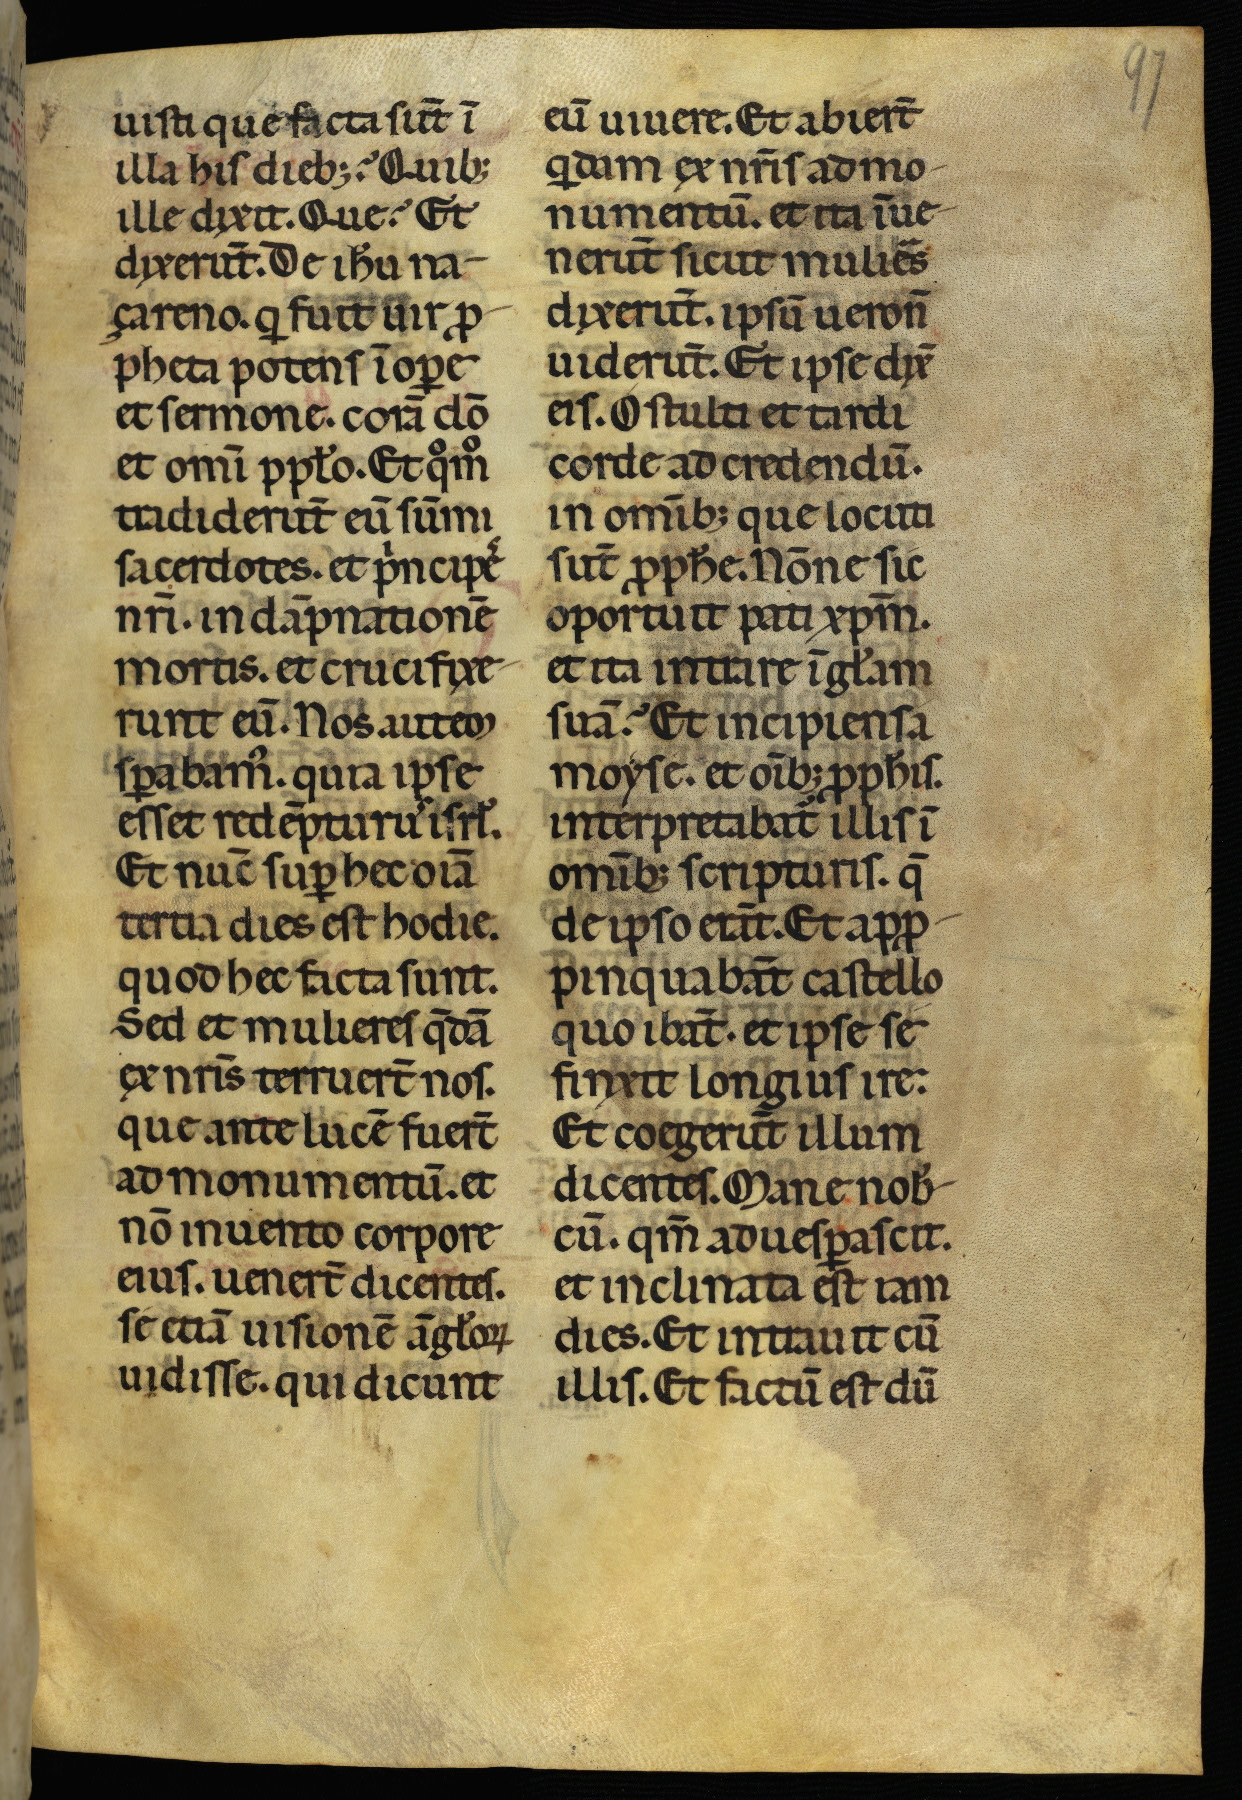 97
uisti que facta sūt ī
illa his dieb; ? Quib;
ille dixit. Que? Et
dixerūt. De ihu na-
çareno. qi fuit uir ꝓ-
pheta potens ī oꝑe
et sermone. corā dō
et omī ppło. Et qͦmͦ
tradiderūt eū sūmi
sacerdotes. et pͥncipes
nr̄i. in dāpnationē
mortis. et crucifixe-
runt eū. Nos autem
sꝑabam᾽. quia ipse
esset redēpturus isrł.
Et nūc suꝑ hec oīa
tertia dies est hodie.
quod hec facta sunt.
Sed et mulieres q̄dā
ex nr̄is terruer̄t nos.
que ante lucē fuer̄t
ad monumentū. et
nō inuento corpore
eius. uener̄t dicentes.
se etiā uisionē āgłoꝝ
uidisse. qui dicunt
eū uiuere. Et abier̄t
qͥdam ex nr̄is ad mo-
numentū. et ita īue-
nerūt sicut mulier̄s
dixerūt. ipsū uero n̄
uiderūt. Et ipse dix̄
eis. O stulti et tardi
corde ad credendū.
in omīb; que locuti
sūt ꝓphe. Nōne sic
oportuit pati xpm̄.
et ita intrare ī głam
suā? Et incipiens a
moyse. et oīb; ꝓphis.
interpretabat᾽ illis ī
omīb; scripturis. q̄
de ipso erāt. Et apꝓ-
pinquabāt castello
quo ibāt. et ipse se
finxit longius ire:
Et coegerūt illum
dicentes. Mane nob-
cū. qm̄ aduesꝑascit.
et inclinata est iam
dies. Et intrauit cū
illis. Et factū est dū